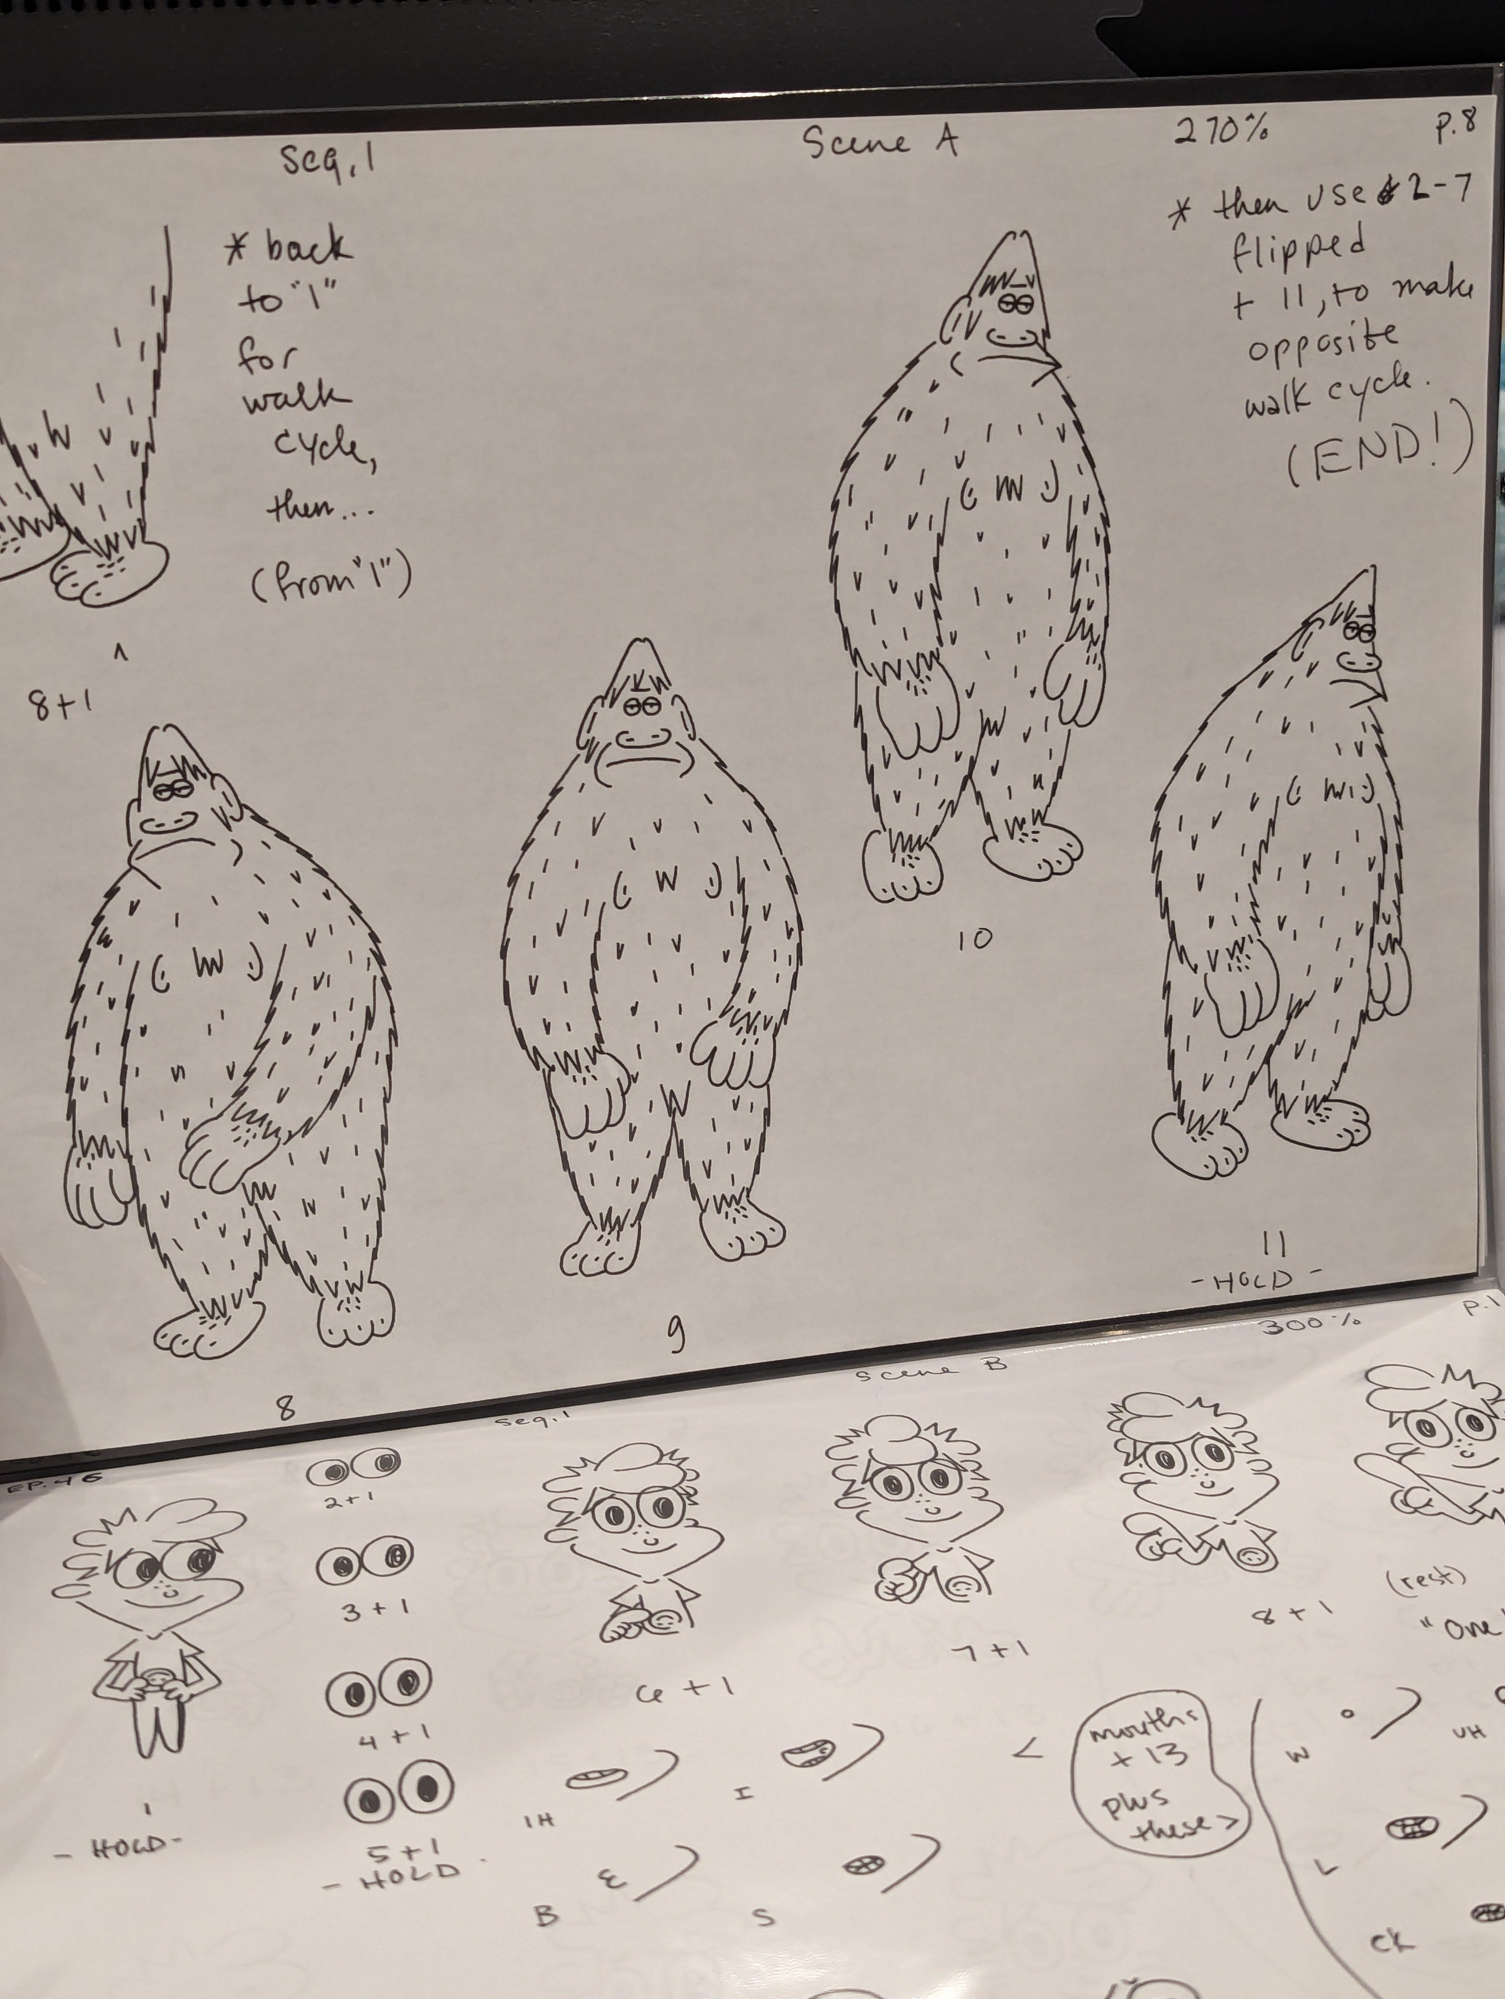 Seq.1
Scene A
270%
p.8
* back
to "1"
for
walk
cycle,
then...
(from "1")
* then use 2-7
flipped
+ 11, to make
opposite
walk cycle.
(END!)
1
8+1
8
9
10
11
-HOLD-
EP.46
Seq.1
Scene B
300%
P.1
1
-HOLD-
2+1
3+1
4+1
5+1
-HOLD
6+1
7+1
8+1
(rest)
"One"
IH
I
B
S
<
mouths
+ 13
plus
these>
W
UH
L
CK